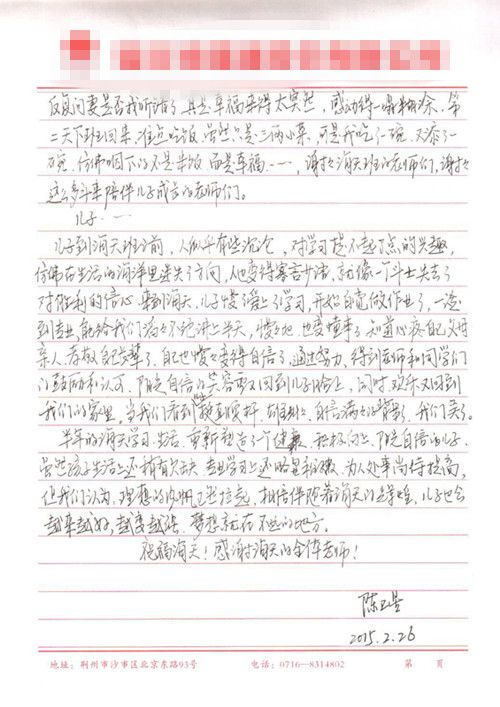 反复问妻是否我听错了,真是幸福来得太突然,感动得一塌糊涂。第
二天下班回来,准点吃饭,虽然只是三两小菜,可是我吃了一碗,又添了一
碗,仿佛咽下的不是米饭,而是幸福……,谢谢海天班的老师们,谢谢
这么多年来陪伴儿子成长的老师们。
儿子……
儿子到海天班之前,人似乎有些沉沦,对学习提不起一点的兴趣,
仿佛在生活的海洋里迷失了方向,人也变得寡言少语,就像一个斗士失去了
对胜利的信心。来到海天,儿子慢慢爱上了学习,开始自觉做作业了,一谈
到专业,能给我们滔滔不绝讲上半天,慢慢地也变懂事了,知道心疼自己父母
亲人,孝敬自己长辈了,自己也慢慢变得自信了。通过努力,得到老师和同学们
的鼓励和认可,阳光自信的笑容又回到儿子脸上,同时欢乐又回到
我们的家里。当我们看到挺直腰杆、自信满满的背影,我们笑了。
半年的海天学习生活,重新塑造了一个健康、积极向上、阳光自信的儿子。
虽然孩子生活上还稍有欠缺,专业学习上还略显稚嫩,为人处事尚待提高,
但我们认为,理想的风帆已然拉起,相信伴随着海天的,儿子也会
越来越好,越变越强,梦想就在不远的地方。
祝福海天!感谢海天的全体老师!
陈卫星
2015.2.26
地址:荆州市沙市区北京东路93号 电话:0716—8314802 第 页